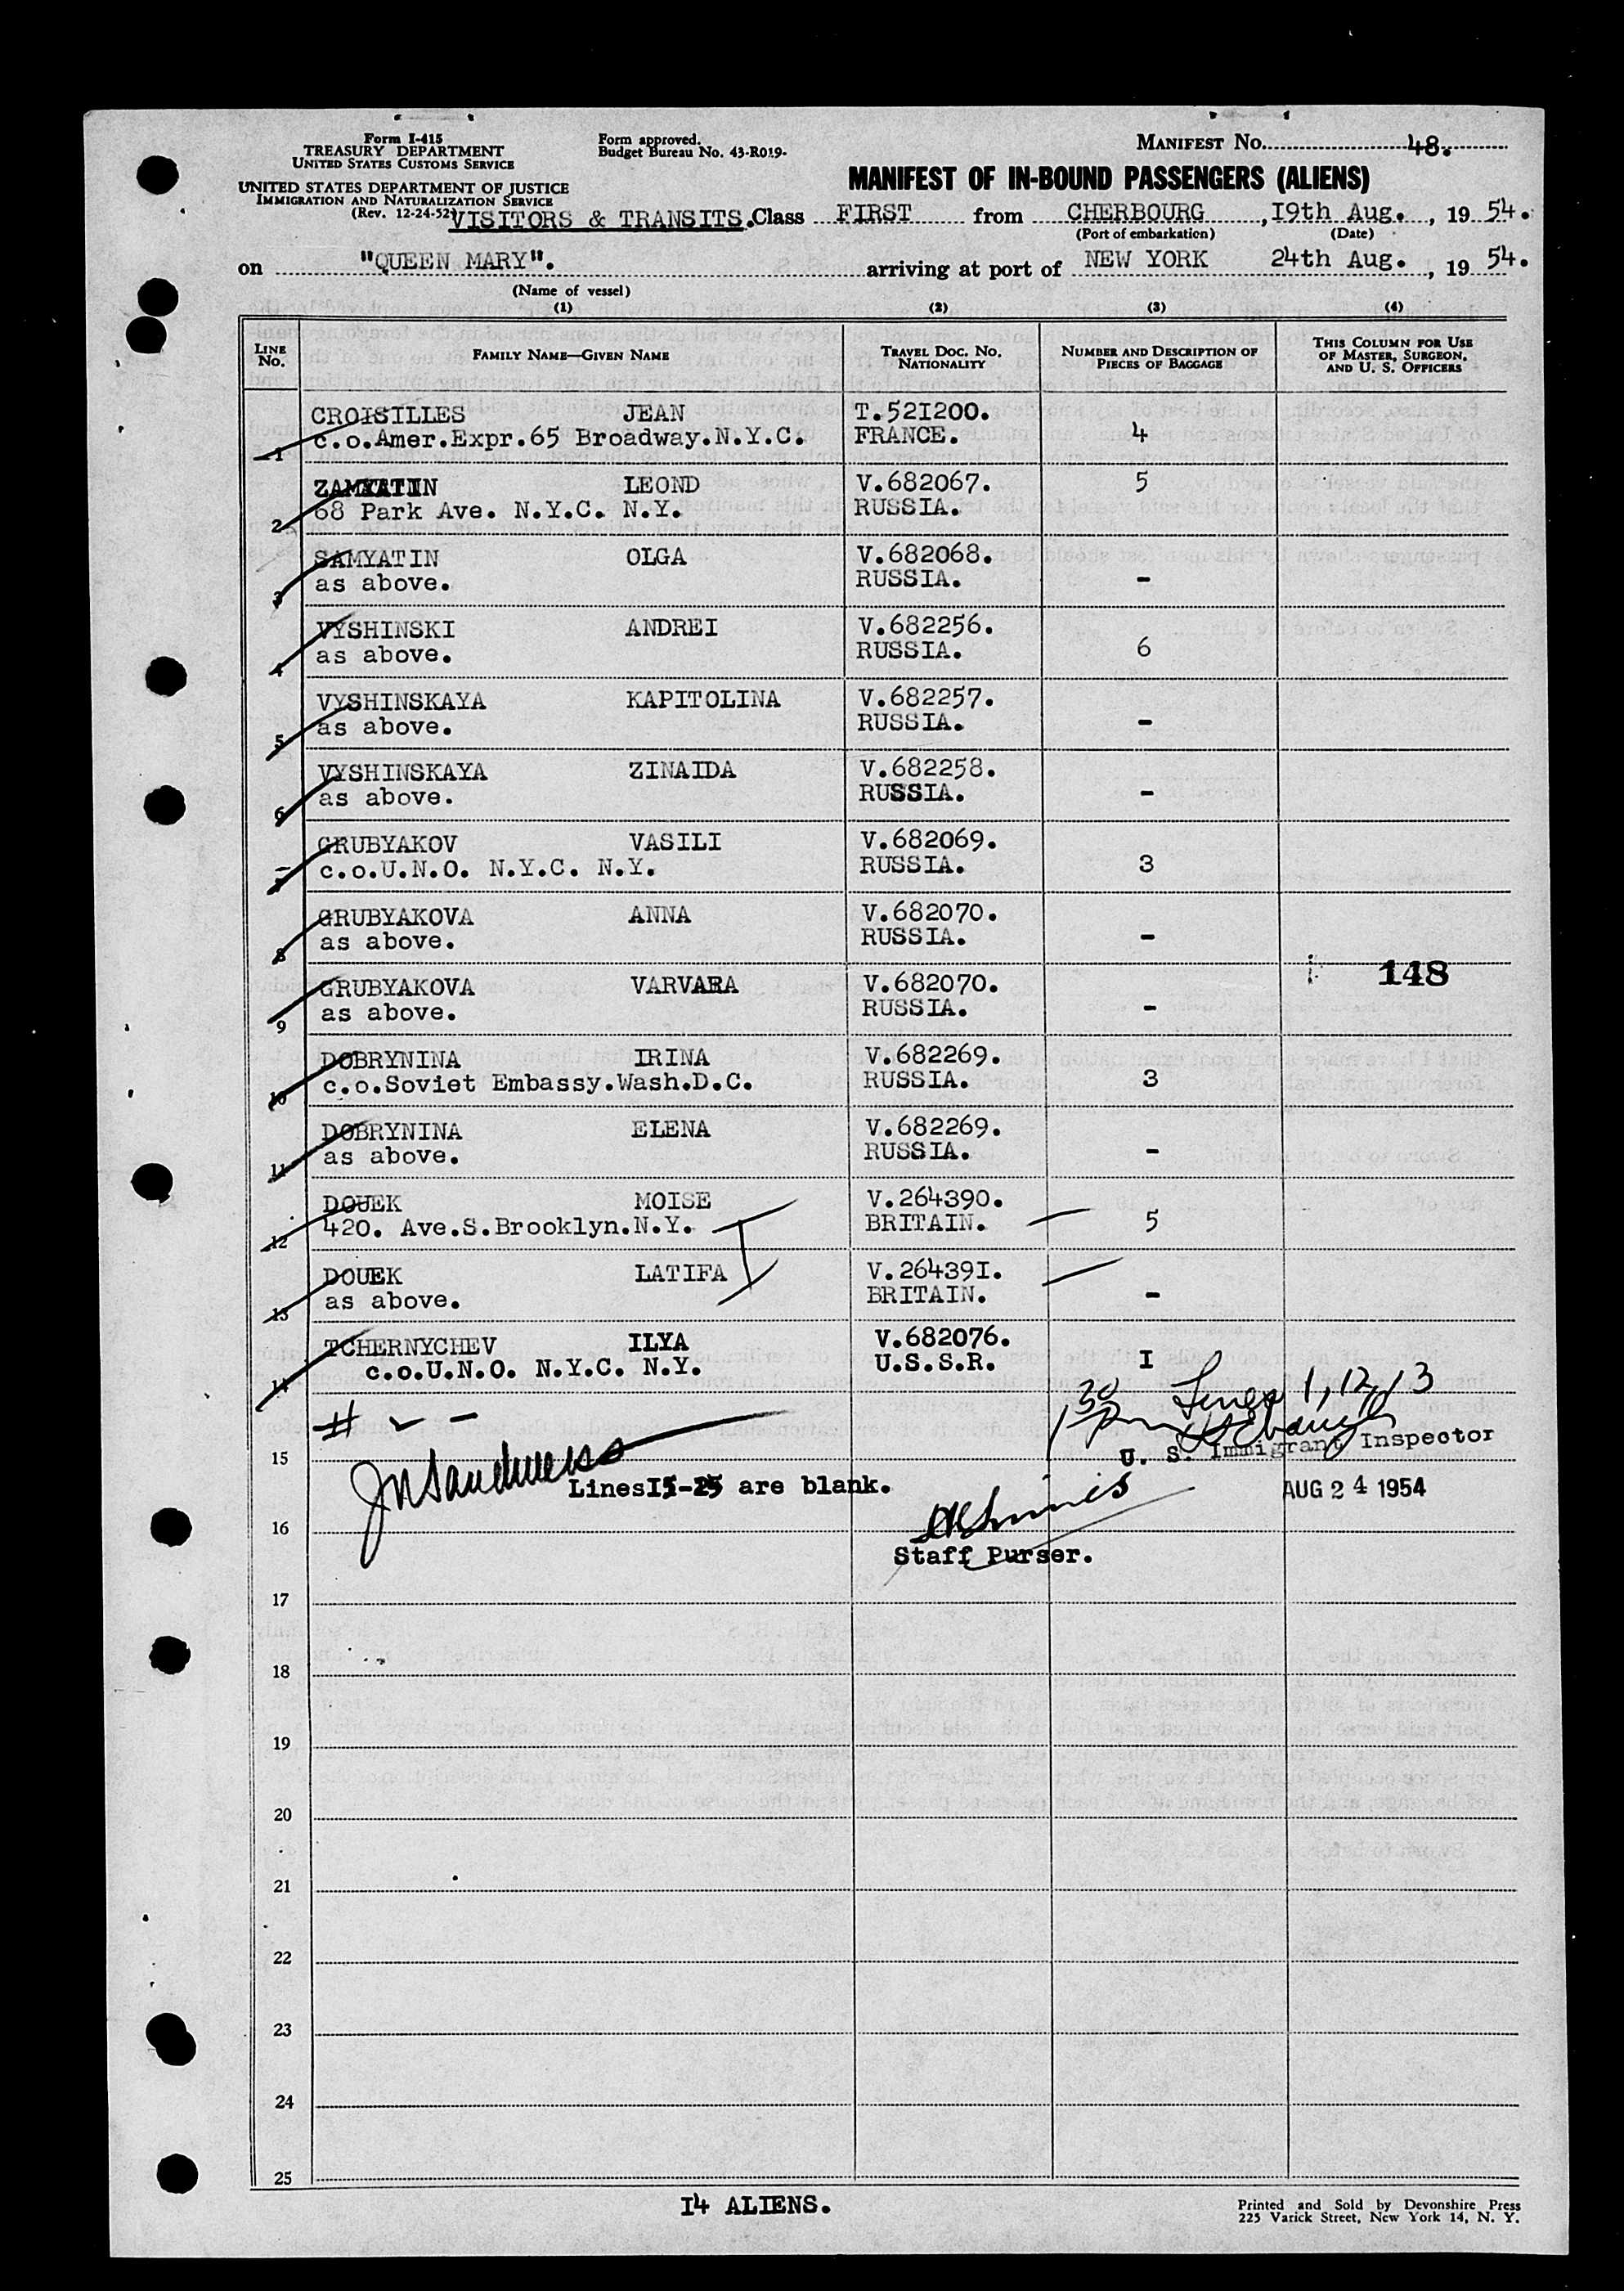 Form I-415
TREASURY DEPARTMENT
UNITED STATES CUSTOMS SERVICE
UNITED STATES DEPARTMENT OF JUSTICE
IMMIGRATION AND NATURALIZATION SERVICE
(Rev. 12-24-52)
Form approved.
Budget Bureau No. 43-R019-
MANIFEST No. 48.
MANIFEST OF IN-BOUND PASSENGERS (ALIENS)
VISITORS & TRANSITS. Class FIRST from CHERBOURG, I9th Aug., 19 54.
(Port of embarkation) (Date)
on "QUEEN MARY". arriving at port of NEW YORK 24th Aug., 19 54.
(Name of vessel)
(1) (2) (3) (4)
LINE No. FAMILY NAME—GIVEN NAME TRAVEL DOC. NO. NATIONALITY NUMBER AND DESCRIPTION OF PIECES OF BAGGAGE THIS COLUMN FOR USE OF MASTER, SURGEON, AND U. S. OFFICERS
CROISILLES JEAN T.52I200.
1 c.o.Amer.Expr.65 Broadway.N.Y.C. FRANCE. 4
ZAMYATIN LEOND V.682067. 5
2 68 Park Ave. N.Y.C. N.Y. RUSSIA.
SAMYATIN OLGA V.682068.
3 as above. RUSSIA. -
VYSHINSKI ANDREI V.682256.
4 as above. RUSSIA. 6
VYSHINSKAYA KAPITOLINA V.682257.
5 as above. RUSSIA. -
VYSHINSKAYA ZINAIDA V.682258.
6 as above. RUSSIA. -
GRUBYAKOV VASILI V.682069.
7 c.o.U.N.O. N.Y.C. N.Y. RUSSIA. 3
GRUBYAKOVA ANNA V.682070.
8 as above. RUSSIA. -
148
GRUBYAKOVA VARVARA V.682070.
9 as above. RUSSIA. -
DOBRYNINA IRINA V.682269.
10 c.o.Soviet Embassy.Wash.D.C. RUSSIA. 3
DOBRYNINA ELENA V.682269.
11 as above. RUSSIA. -
DOUEK MOISE V.264390.
12 420. Ave.S.Brooklyn.N.Y. BRITAIN. 5
DOUEK LATIFA V.26439I.
13 as above. BRITAIN. -
TCHERNYCHEV ILYA V.682076.
14 c.o.U.N.O. N.Y.C. N.Y. U.S.S.R. I
Lines 1, 12, 13
1 30 pm
U. S. Immigrant Inspector
15
LinesI5-25 are blank.
AUG 24 1954
16
Staff Purser.
17
18
19
20
21
22
23
24
25
I4 ALIENS.
Printed and Sold by Devonshire Press
225 Varick Street, New York 14, N. Y.